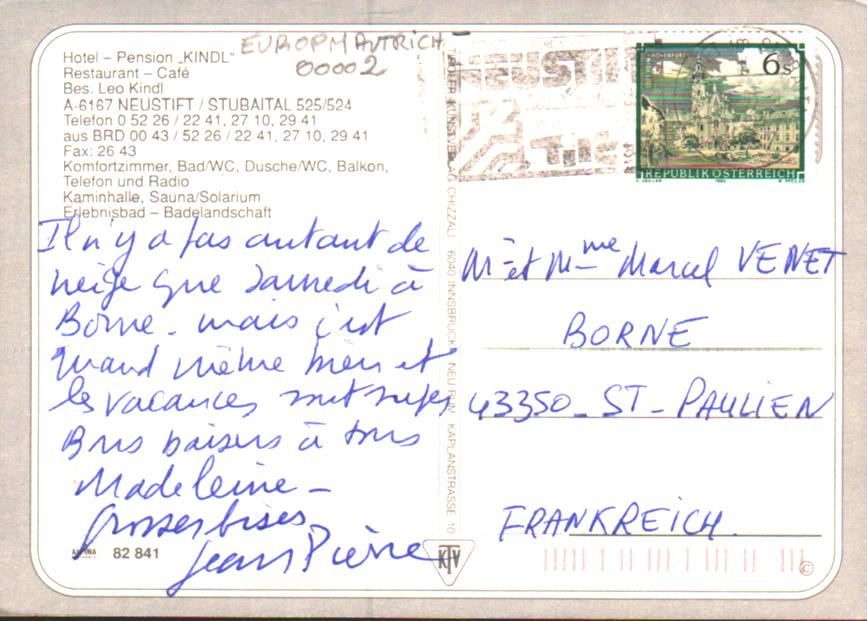 EUROPMAUTRICH
00002
Hotel – Pension „KINDL"
Restaurant – Café
Bes. Leo Kindl
A-6167 NEUSTIFT / STUBAITAL 525/524
Telefon 0 52 26 / 22 41, 27 10, 29 41
aus BRD 00 43 / 52 26 / 22 41, 27 10, 29 41
Fax: 26 43
Komfortzimmer, Bad/WC, Dusche/WC, Balkon,
Telefon und Radio
Kaminhalle, Sauna/Solarium
Erlebnisbad – Badelandschaft
Il n'y a pas autant de
neige que Samedi à
Borne - mais c'est
quand même bien et
les vacances sont super
Bons baisers à tous
Madeleine -
Grosses bises
Jean Pierre
82 841
TIROLER KUNSTVERLAG CHIZZALI 6040 INNSBRUCK NEU-RUM KAPLANSTRASSE 10
KTV
NEUSTIFT
6s
REPUBLIK ÖSTERREICH
M et Mme Marcel VENET
BORNE
43350 - ST - PAULIEN
FRANKREICH.
©